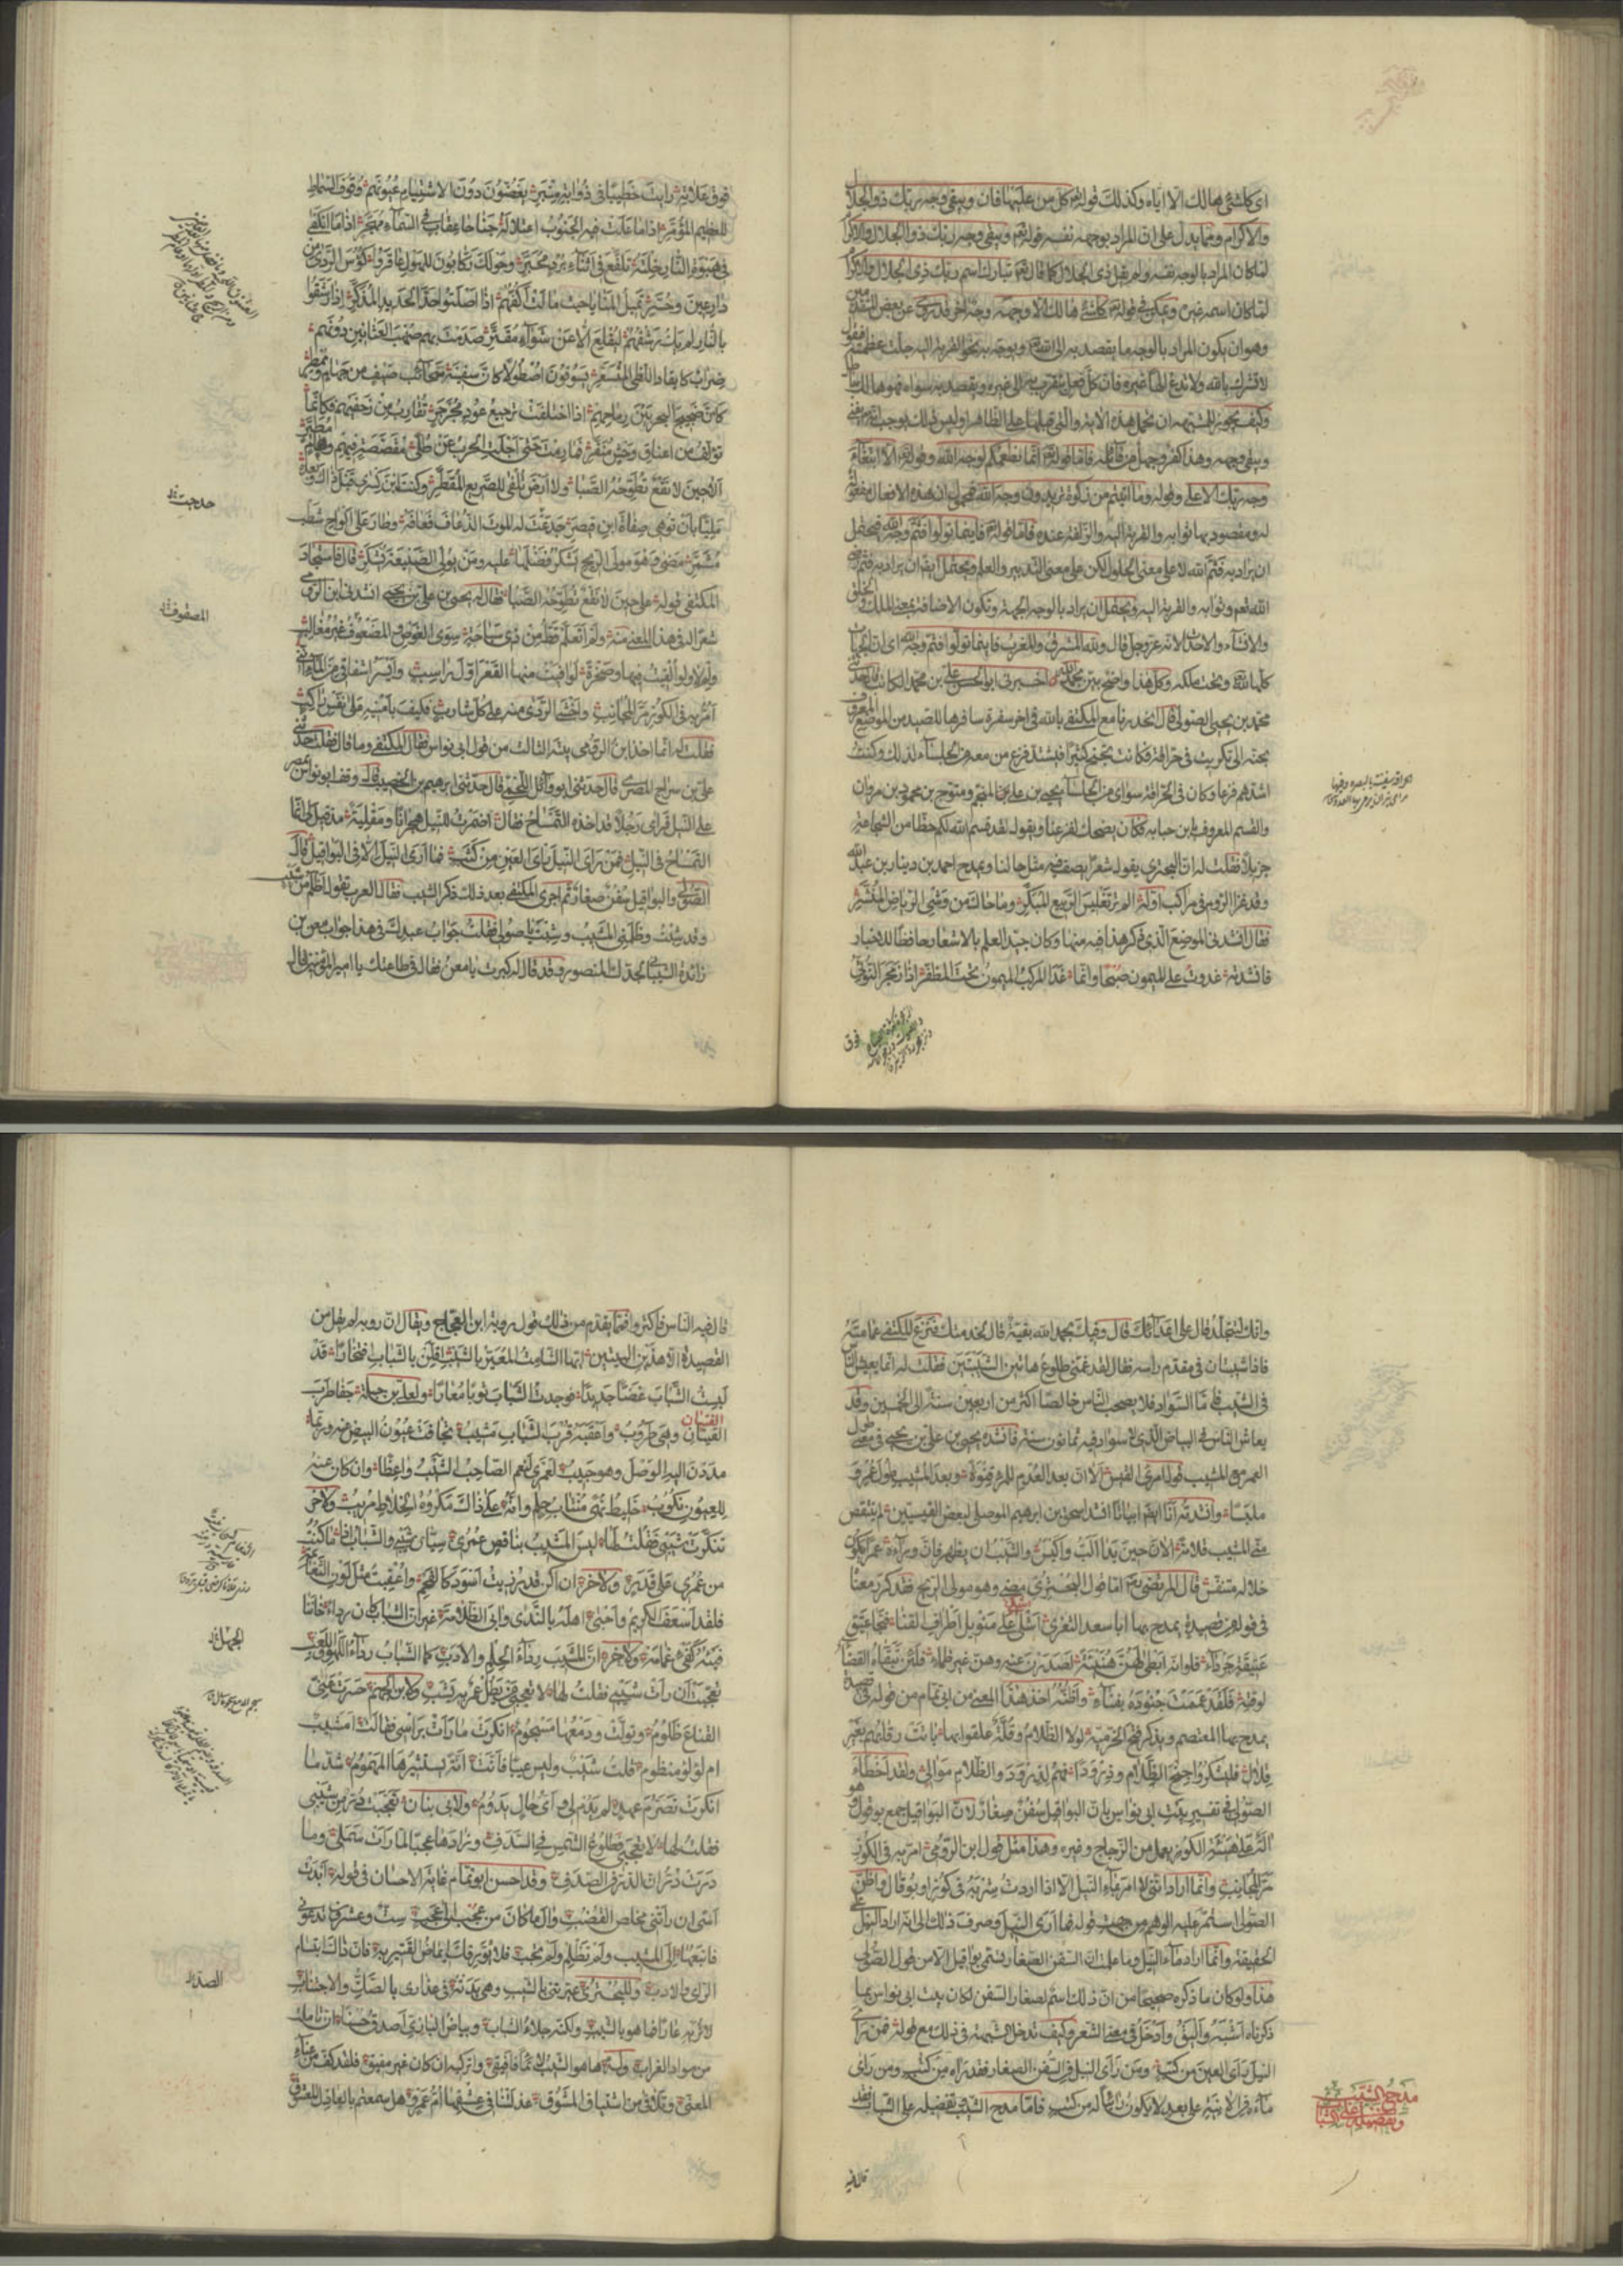 اى كل شئ هالك الا اياه وكذلك قوله تعم كل من عليها فان ويبقى وجه ربك ذو الجلال
والاكرام ومما يدل على ان المراد بوجهه نفسه قوله تعم ويبقى وجه ربك ذو الجلال والاكرام
لما كان المراد بالوجه نفسه ولم يقل ذى الجلال كما قال تعم تبارك اسم ربك ذى الجلال والاكرام
لما كان اسمه غيره ويمكن فى قوله تعم كل شئ هالك الا وجهه وجه اخر قد روى عن بعض المتقدمين
وهو ان يكون المراد بالوجه ما يقصد به الى الله تعم ويوجه به نحو القربة اليه جلت عظمته فيقول
لا تشرك بالله ولا تدع الها غيره فان كل فعل يتقرب به الى غيره ويقصد به سواه فهو هالك باطل
وكيف يجوز للمشبهة ان تحمل هذه الاية والتى قبلها على الظاهر او ليس ذلك يوجب انه تعم يفنى
ويبقى وجهه وهذا كفر وجهل من قائله فاما قوله تعم انما نطعمكم لوجه الله وقوله الا ابتغاء
وجه ربه الاعلى وقوله وما اتيتم من زكوة تريدون وجه الله فمحمول ان هذه الافعال مفعولة
له ومقصود بها ثوابه والقربة اليه والزلفة عنده فاما قوله تعم فاينما تولوا فثم وجه الله فيحتمل
ان يراد به فثم الله لا على معنى الحلول لكن على معنى التدبير والعلم ويحتمل ايضا ان يراد به فثم رضى
الله تعم وثوابه والقربة اليه ويحتمل ان يراد بالوجه الجهة وتكون الاضافة بمعنى الملك والخلق
والانشاء والاحداث لانه عز وجل قال ولله المشرق والمغرب فاينما تولوا فثم وجه الله اى ان الجهات
كلها لله وتحت ملكه وكل هذا واضح بين بحمد الله اخبرنى ابو الحسن على بن محمد الكاتب قال حدثنى
محمد بن يحيى الصولى قال انحدرنا مع المكتفى بالله فى اخر سفرة سافرها للصيد من الموضع المعروف
بحنه الى تكريت فى حراقة فكانت تجنح كثيرا فيشتد فزع من معه من الجلساء لذلك وكنت
اشدهم فزعا وكان فى الحراقة سواى من الجلساء يحيى بن على بن المنجم ومتوج بن محمود بن مروان
والقسم المعروف بابن حبابه فكان يضحك لفزعنا ويقول لقد قسم الله لكم حظا من الشجاعة
جزيلا فقلت له ان البحترى يقول شعرا يصف فيه مثل حالنا ويمدح احمد بن دينار بن عبد الله
وقد غزا الروم فى مراكب اوله الم تر تغليس الربيع المبكر وما حاك من وشى الرياض المنشر
فقال انشدنى الموضع الذى ذكر هذا فيه منها وكان جيد العلم بالاشعار حافظا للاخبار
فانشدته غدوت على الميمون صبحا وانما غدا المركب الميمون تحت المظفر اذا زمجر النوتى
فوق
فوق علاته رايت خطيبا فى ذؤابة منبر يغضون دون الاشتيام عيونهم وقوف السماط
للعظيم المؤمر اذا ما علت فيه الجنوب اعتلا له جناحا عقاب فى السماء مهجر اذا ما انكفى
فى هبوة النار خلته تلفع فى اثناء برد محبر وحولك ركابون للهول عاقروا كؤس الردى من
دارعين وحسر تميل المنايا حيث مالت اكفهم اذا اصلتوا حد الحديد المذكر اذا رشقوا
بالنار لم يك رشقهم ليقلع الا عن شواء مقتر صدمت بهم صهب العثانين دونهم
ضراب كايقاد اللظى المتسعر يسوقون اصطولا كان سفينه سحائب صيف من جهام وممطر
كان ضجيج البحر بين رماحهم اذا اختلفت ترجيع عود مجرجر تقارب من زحفيهم فكانما
تؤلف من اعناق وحش منفر فما رمت حتى اجلت الحرب عن طلى مقصصة فيهم وهام مطير
على حين لا نقع تطوحه الصبا ولا ارض تلفى للصريع المقطر وكنت ابن كسرى قبل ذاك وبعده
مليا بان توهى صفاة ابن قيصر جدحت له الموت الذعاف فعافه وطار على الواح شطب
مسمر مضى وهو مولى الريح يشكر فضلها عليه ومن يولى الصنيعة يشكر قال فاستجاد
المكتفى قوله على حين لا نقع تطوحه الصبا فقال له يحيى بن على بن يحيى انشدنى ابن الرومى
شعرا له فى هذا المعنى منه ولم اتعلم قط من ذى سباحة سوى الغوص والمضعوف غير مغالب
ولم لا ولو القيت فيها وصخرة لوافيت منها القعر اول راسب وايسر اشفاقى من الماء اننى
امر به فى الكوز مر المجانب واخشى الردى منه على كل شارب فكيف بامنيه على نفس راكب
فقلت له انما اخذ ابن الرومى بيته الثالث من قول ابى نواس فقال المكتفى وما قال فقلت حدثنى
على بن سراج المصرى قال حدثنى ابو وائل اللخمى قال حدثنى ابرهيم بن الخصيب قال وقف ابو نواس بمصر
على النيل فراى رجلا قد اخذه التمساح فقال اضمرت للنيل هجرانا ومقلية مذ قيل لى انما
التمساح فى النيل فمن راى النيل راى العين من كثب فما ارى النيل الا فى البواقيل قال
الصولى والبواقيل سفن صغار ثم اجرى المكتفى بعد ذلك ذكر الشيب فقال العرب تقول اظلم من شيب
وقد شبت وظلمنى المشيب وشبت يا صولى فقلت جواب عبدك فى هذا جواب معن بن
زائدة الشيبانى لجدك المنصور وقد قال له كبرت يا معن فقال فى طاعتك يا امير المؤمنين قال
حدجت
المصفوف
وانك لتتجلد قال على اعدائك قال وفيك بحمد الله بقية قال لخدمتك فنزع المكتفى عمامته
فاذا شيبتان فى مقدم راسه فقال لقد غمنى طلوع هاتين الشيبتين فقلت له انما يعيش الناس
فى الشيب فاما السواد فلا يصحب الناس خالصا اكثر من اربعين سنة الى الخمسين وقد
يعاش الناس فى البياض الذى لا سواد فيه ثمانون سنة فانشده يحيى بن على بن يحيى فى معنى طول
العمر مع المشيب قول امرئ القيس الا ان بعد العدم للمرء قنوة وبعد المشيب طول عمر و
ملبسا وانشدته انا ايضا ابياتا انشد اسحق بن ابرهيم الموصلى لبعض القيسيين لم ينتقص
منى المشيب قلامة الان حين بدا الب واكيس والشيب ان يظهر فان وراءه عمرا يكون
خلاله متنفس قال المرتضى رضى اما قول البحترى مضى وهو مولى الريح فقد كرر معناه
فى قوله من قصيدة يمدح بها ابا سعد الثغرى اشلى على منويل اطراف القنا فنجا عتيق
عتيقة جرداء فلو انه ابطى لهن هنيهة لصدرن عنه وهن غير ظماء فلئن تبقاه القضاء
لوقته فلقد عممت جنوده بفناء واظنه اخذ هذا المعنى من ابى تمام من قوله فى قصيدة
يمدح بها المعتصم ويذكر فتح الخرمية لولا الظلام وقلة علقوا بها باتت رقابهم بغير
قلال فليشكروا جنح الظلام ودروذا فهم لدروذ والظلام موالى ولقد اخطأ
الصولى فى تفسير بيت ابى نواس بان البواقيل سفن صغار لان البواقيل جمع بوقال وهو
الة على هيئة الكوز يعمل من الزجاج وغيره وهذا مثل قول ابن الرومى امر به فى الكوز
مر المجانب وانما اراد اننى لا امر بماء النيل الا اذا اردت شربه فى كوز او بوقال واظن
الصولى استمر عليه الوهم من جهة قوله فما ارى النيل وصرف ذلك الى انه اراد النيل على
الحقيقة وانما اراد ماء النيل وما علمت ان السفن الصغار تسمى بواقيل الا من قول الصولى
هذا ولو كان ما ذكره صحيحا من ان ذلك اسم لصغار السفن لكان بيت ابى نواس بما
ذكرناه اشبه واليق وادخل فى معنى الشعر وكيف تدخل شبهة فى ذلك مع قوله فمن راى
النيل راى العين من كثب ومن راى النيل فى السفن الصغار فقد راه من كثب ومن راى
ماءه فى الانية على بعد لا يكون رائيا له من كثب فاما مدح الشيب وتفضيله على الشباب فقد
مدح الشيب
وتفضيله على الشباب
قال فيه
قال فيه الناس فاكثروا فمما يقدم من ذلك قول رؤبة ابن العجاج ويقال ان رؤبة لم يقل من
القصيدة الا هذين البيتين ايها الشامت المعير بالشيب اقلن بالشباب افتخارا قد
لبست الشباب غضا جديدا فوجدت الشباب ثوبا معارا ولعلى بن جبلة جفا طرب
القيان
الفتيان وهى طروب واعقبه قرب الشباب مشيب تجافت عيون البيض عنه وربما
مددن اليه الوصل وهو حبيب لعمرى لنعم الصاحب الشيب واعظا وان كان عنه
للعيون نكوب خليط نهى منتاب حلم وانه على ذاك مكروه الخلاط مريب ولاخر
تنكرت شيبى فقلت لها ليس المشيب بناقص عمرى سيان شيبى والشباب اذا ما كنت
من عمرى على قدر ولاخر ان اكن قد رزيت اسود كالفحم واعقبت مثل لون الثغامة
فلقد اسعف الكريم واحبى اهله بالندى وابى الظلامة غير ان الشباب كان رداء خاننا
فيئه كفئ غمامة ولاخر ان المشيب رداء الحلم والادب كما الشباب رداء اللهو واللعب
تعجبت ان رات شيبى فقلت لها لا تعجبى من يطل عمر به يشب ولابن الجهم حسرت عنى
القناع ظلوم وتولت ودمعها مسجوم انكرت ما رات براسى فقالت امشيب
ام لؤلؤ منظوم قلت شيب وليس عيبا فانت انة يستثيرها المهموم شد ما
انكرت تصرم عهد لم يدم لى واى حال يدوم ولابى بنان تعجبت در من شيبى
فقلت لها لا تعجبى فطلوع الشمس فى السدف وزادها عجبا لما رات سملى وما
درت در ان الدر فى الصدف وقد احسن ابو تمام غاية الاحسان فى قوله ابدت
اسى ان راتنى مخلس القصب وال ما كان من عجب الى عجب ست وعشرون تدعونى
فاتبعها الى المشيب ولم تظلم ولم تحب فلا يؤرقك ايماض القتير به فان ذاك ابتسام
الراى والادب وللبحترى عيرتنى بالشيب وهى بدته فى عذارى بالصد والاجتناب
لا تريه عارا فما هو بالشيب ولكنه جلاء الشباب وبياض البازى اصدق حسنا ان تاملت
من سواد الغراب وله ها هو الشيب لائما فافيقى واتركيه ان كان غير مفيق فلقد كف من عناء
المعنى وتلافى من اشتياق المشوق عذلتنا فى عشقها ام عمرو هل سمعتم بالعاذل المعشوق
الصد